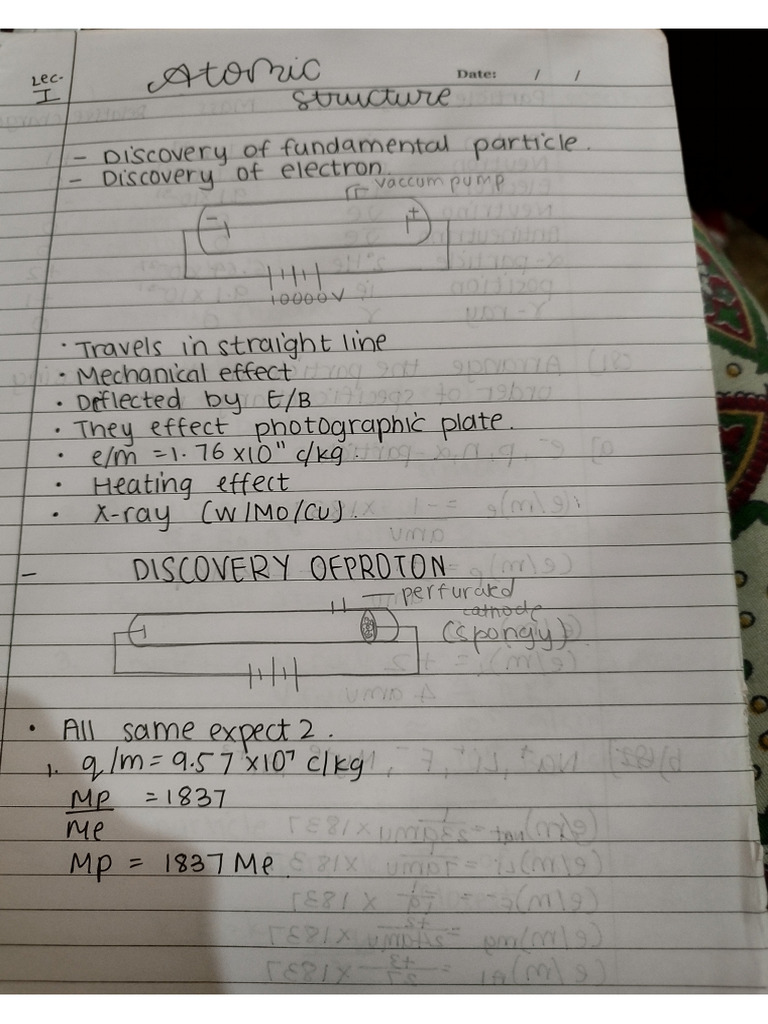 Lec-
I
Atomic
Date: / /
structure
- Discovery of fundamental particle.
- Discovery of electron.
vaccum pump
-
+
10000V
• Travels in straight line
• Mechanical effect
• Deflected by E/B
• They effect photographic plate.
• e/m = 1.76 x10" c/kg.
• Heating effect
• X-ray (W/Mo/Cu).
- DISCOVERY OFPROTON
perfurated
cathode
(spongy)
• All same expect 2.
1. q/m = 9.57 x10⁷ c/kg
Mp = 1837
Me
Mp = 1837 Me.